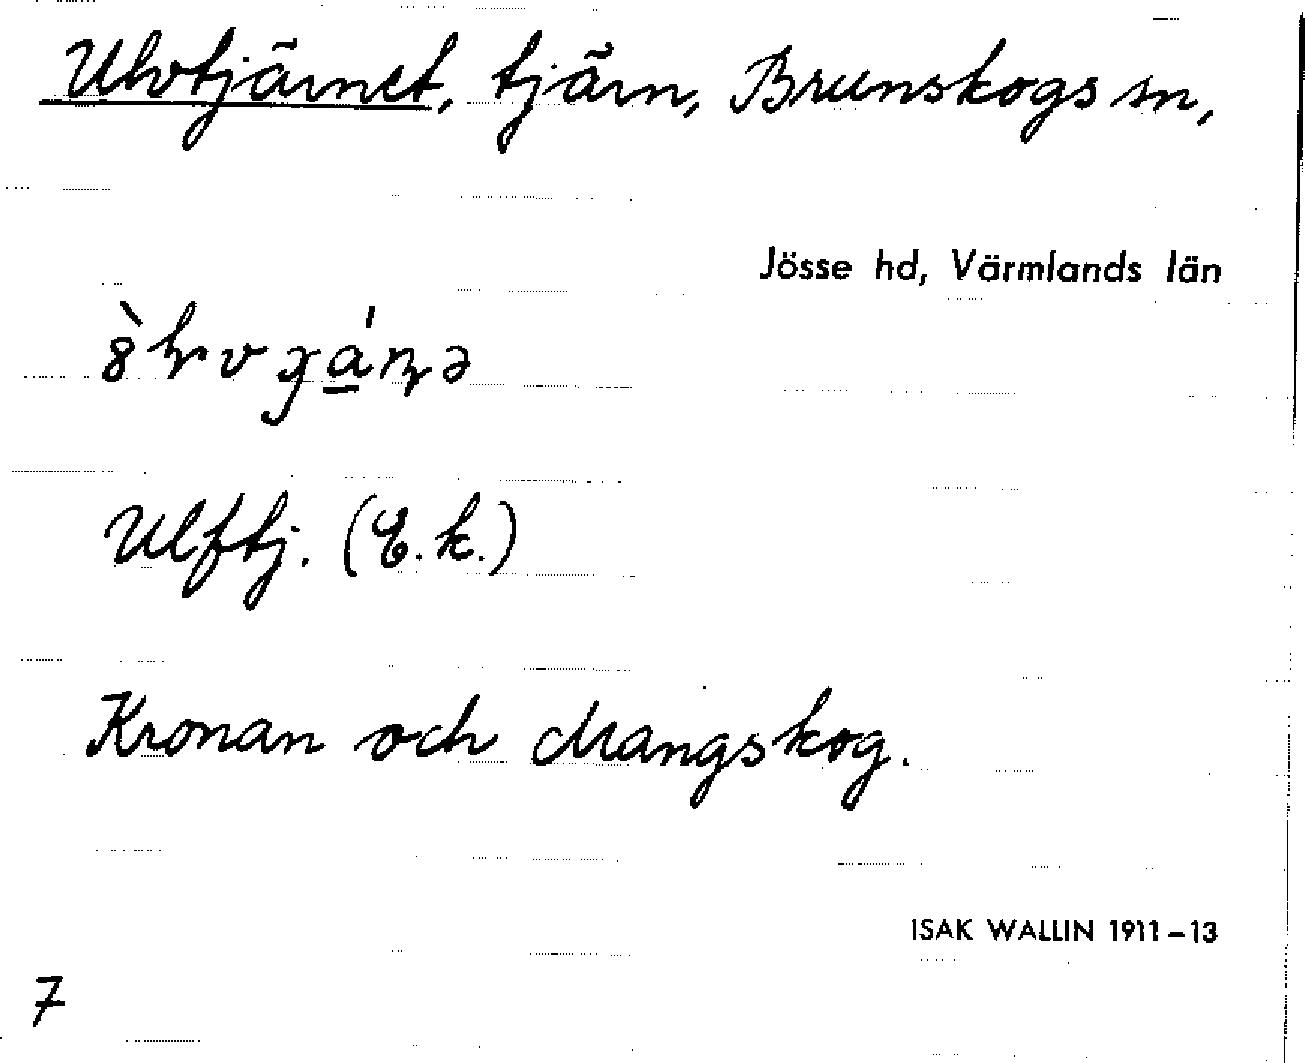 Ulvtjärnet, tjärn, Brunskogs sn,
Jösse hd, Värmlands län
Ulftj. (E. k.)
Kronan och Mangskog.
ISAK WALLIN 1911–13
7